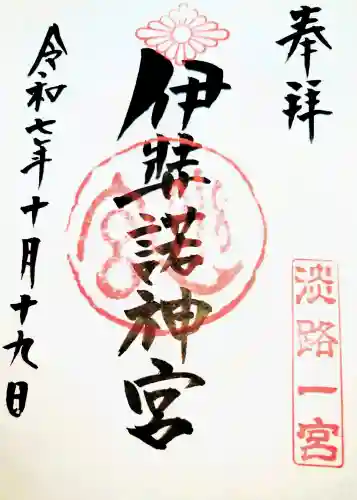 奉拝
淡路一宮
伊弉諾神宮
令和七年十月十九日